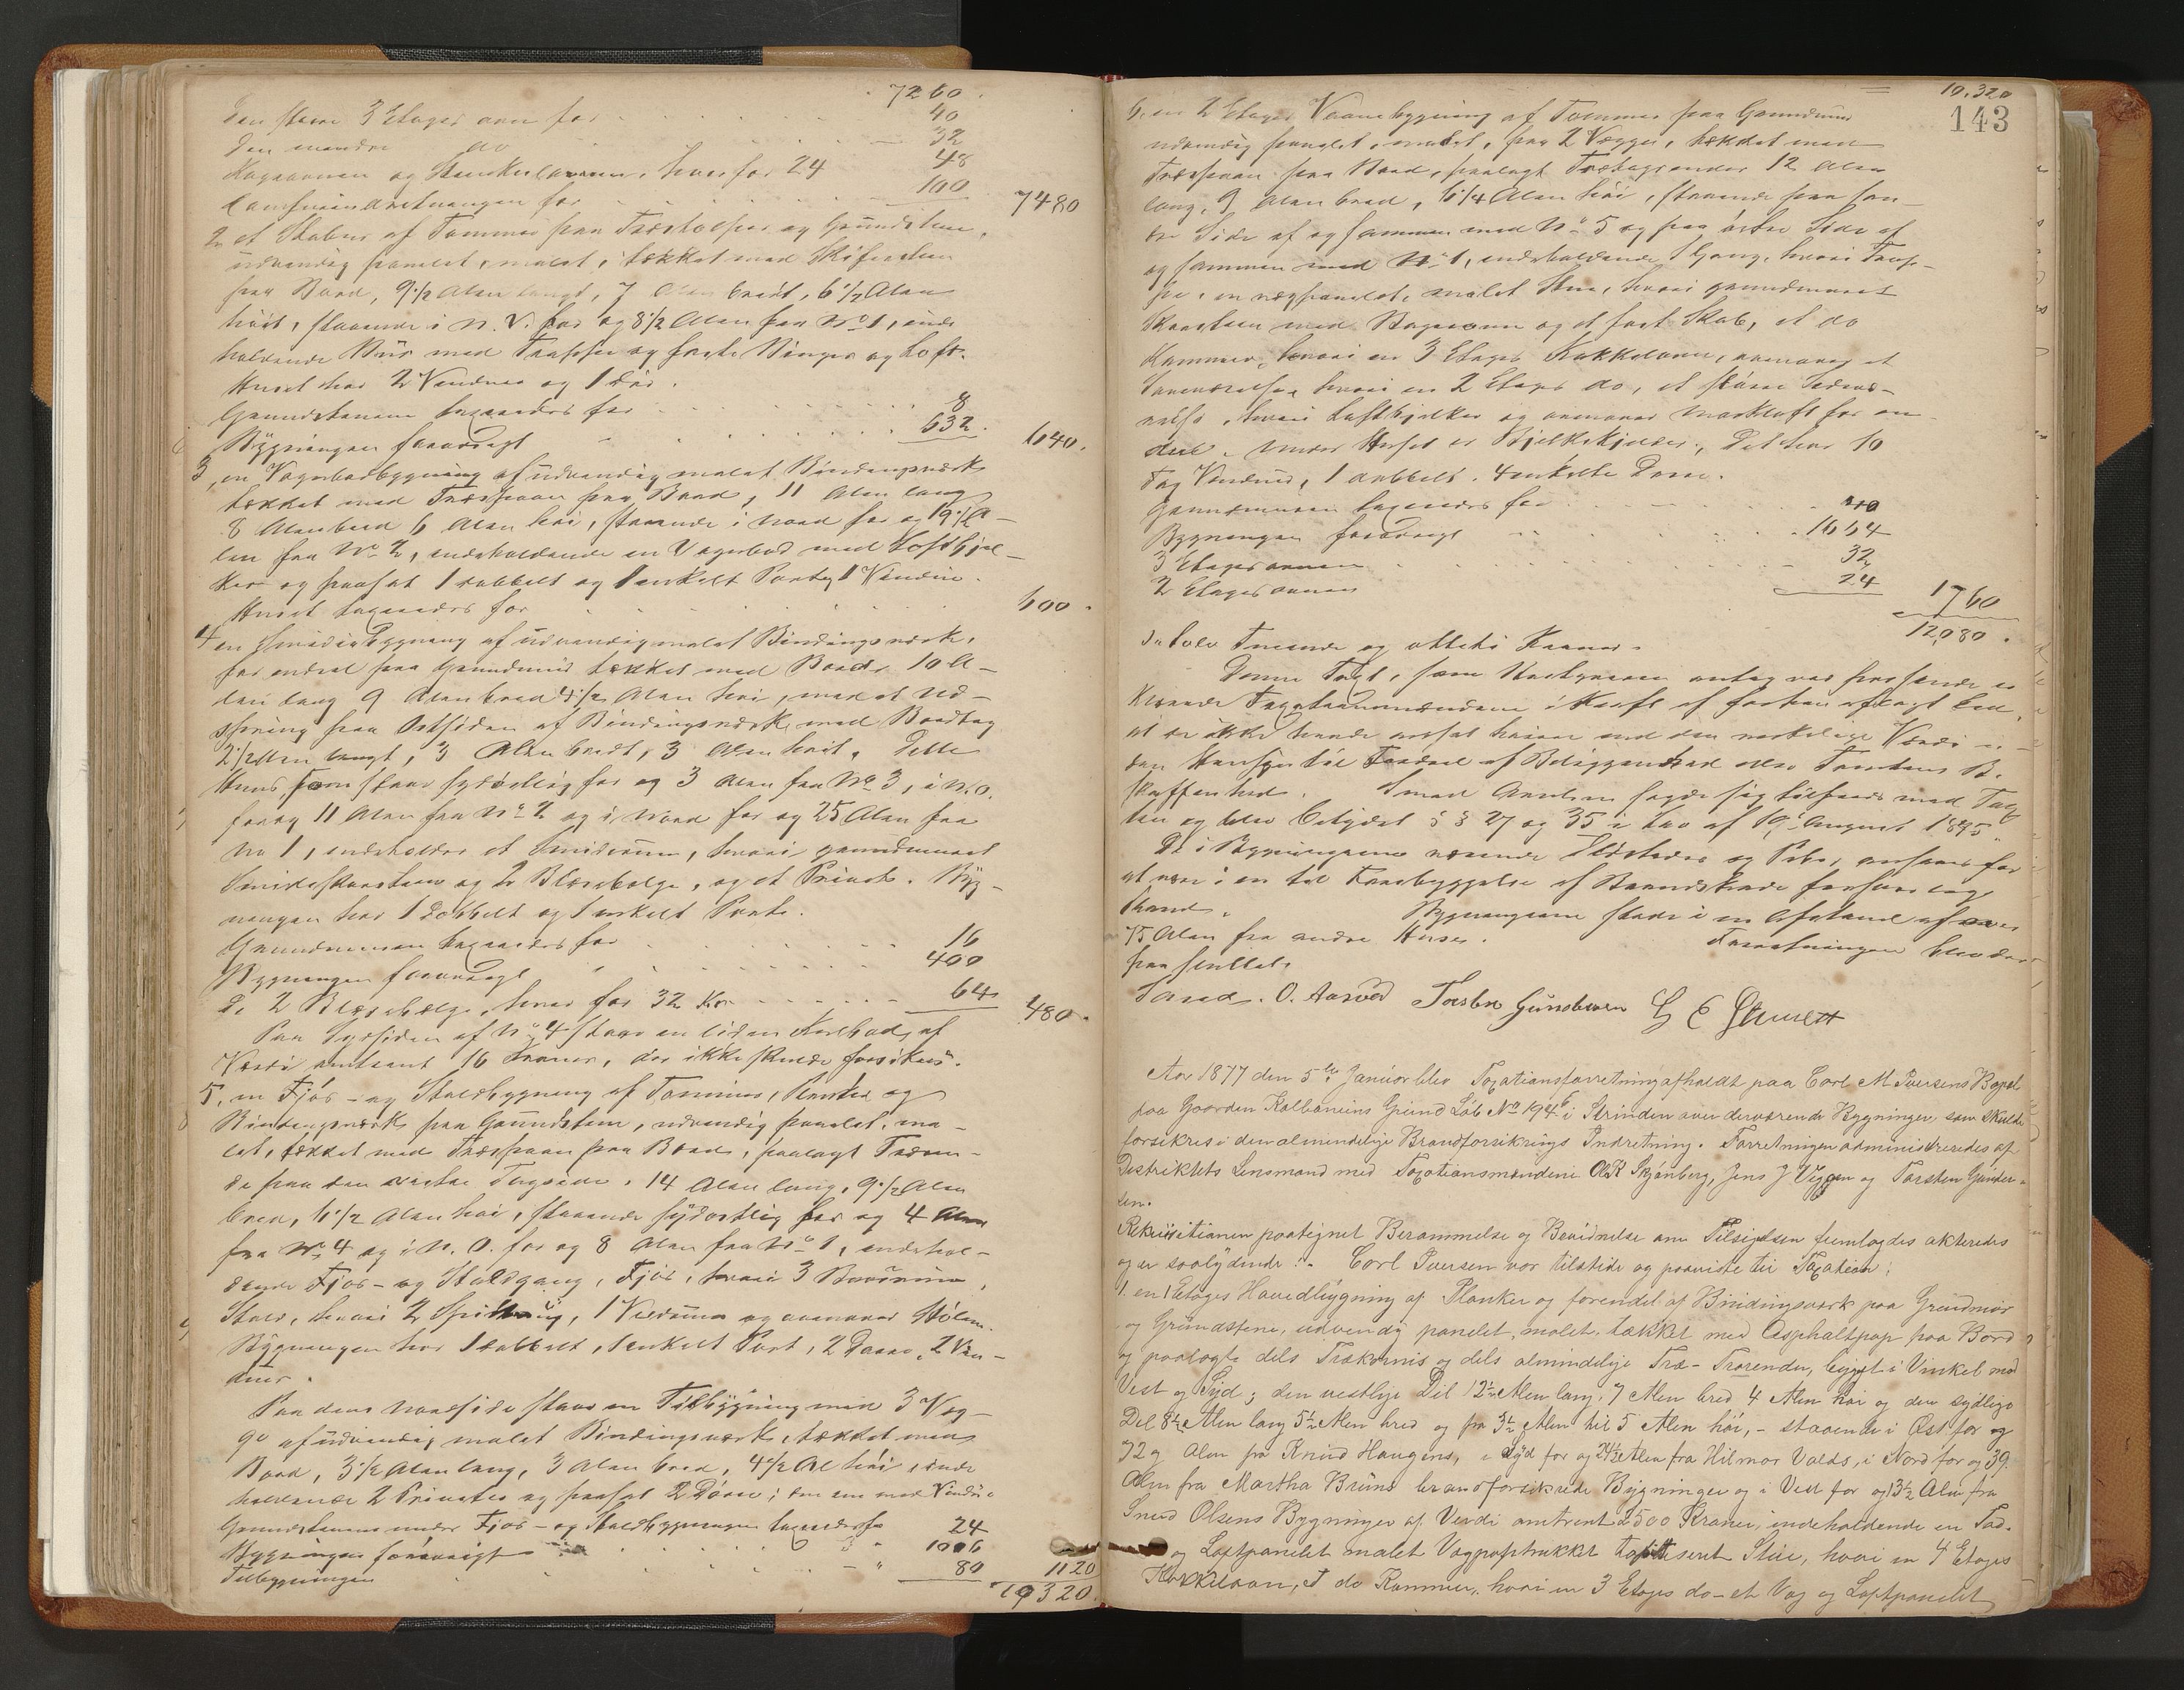 7260
den større 3 Etages ovn for 40
den mindre do 32
Kogeovnen og Stenkulovnen, hver for 24 48
Comfurindretningen for 100 7480
2, et Stabur af Tømmer paa Træstolper og Grundstene,
udvendig panelet, malet, tækket med Skifersten
paa Bord, 9 1/2 Alen langt, 7 Alen bredt, 6 1/2 Alen
høit, staaende i N. V. for og 8 1/2 Alen fra No 1, inde
holdende Bur med Trappe og faste Binger og Loft.
Huset har 2 Vinduer og 1 Dør.
Grundstenene taxeredes for 8
Bygningen forøvrigt 632. 640.
3, en Vognbodbygning af udvendig malet Bindingsværk
tækket med Træspaan paa Bord, 11 Alen lang
8 Alen bred 6 Alen høi, staaende i Nord for og 19 1/2 A-
len fra No 2, indeholdende en Vognbod med Loftbjel-
ker og paasat 1 dobbelt og 1 enkelt Port og 1 Vindue.
Huset taxeredes for 600.
4 en Smidiebygning af udvendig malet Bindingsværk,
for endeel paa Grundmur tækket med Bord, 10 A-
len lang 9 Alen bred 4 1/2 Alen høi, med et Ud-
spring paa Østsiden af Bindingsværk med Bordtag
2 1/2 Alen langt, 3 Alen bredt, 3 Alen høit. Dette
Huus, som staar sydøstlig for og 3 Alen fra No 3, i N.O.
for og 11 Alen fra No 2 og i Nord for og 25 Alen fra
No 1, indeholder et Smidierum, hvori grundmuret
Smideskorsteen og 2 Blæsebælge, og et Privat. Byg-
ningen har 1 dobbelt og 1 enkelt Porte.
Grundmuren taxeredes for 16
Bygningen forøvrigt 400
De 2 Blæsebælge, hver for 32 Kr. 64 480.
Paa Sydsiden af No 4 staar en liden Kulbod, af
Værdi omtrent 16 Kroner, der ikke skulde forsikres.
5, en Fjøs- og Staldbygning af Tømmer, Planker og
Bindingsværk paa Grundstene, udvendig panelet, ma-
let, tækket med Træspaan paa Bord, paalagt Træren-
de paa den østre Tagside, 14 Alen lang, 9 1/2 Alen
bred, 6 1/2 Alen høi, staaende sydøstlig for og 4 Alen
fra No 4 og i N. O. for og 8 Alen fra No 1, indehol-
dende Fjøs- og Staldgang, Fjøs, hvori 3 Baasrum,
Stald, hvori 2 Spiltoug, 1 Vedrum og ovenover Stølem.
Bygningen har 1 dobbelt, 1 enkelt Port, 2 Døre, 2 Vin-
duer.
Paa dens Nordside staar en Tilbygning med 3 Væg-
ge af udvendig malet Bindingsværk, tækket med
Bord, 3 1/2 Alen lang, 3 Alen bred, 4 1/2 Al. høi, inde
holdende 2 Privater og paasat 2 Døre; den ene med Vindue
Grundstenene under Fjøs- og Staldbygningen taxeredes for 24
Bygningen forøvrigt 1016
Tilbygningen 80 1120
10320.
10.320
143
6, en 2 Etages Vaanebygning af Tømmer paa Grundmur
udvendig panelet, malet, paa 2 Vægge, tækket med
Træspaan paa Bord, paalagt Trætagrender 12 Alen
lang, 9 Alen bred, 6 1/4 Alen høi, staaende paa søn-
dre Side af og sammen med No 5 og paa østre Side af
og sammen med No 1, indeholdende 1 Gang, hvori Trap-
pe, en vægpanelet, malet Stue, hvori grundmuret
Skorsteen med Bageovn og et fast Skab, et do
Kammer, hvori en 3 Etages Kakkelovn, ovenover et
Soveværelse, hvori en 2 Etages do, et større Side væ-
relse, hvori Loftbjelker og ovenover Mørkloft for en
deel. Under Huset er Bjelkekjelder, Det har 10
Fag Vinduer, 1 dobbelt, 4 enkelte Døre.
Grundmuren taxeredes for 40
Bygningen forøvrigt 1664
3 Etages ovnen 32
2 Etages ovnen 24 1760
12,080.
tolv Tusende og otteti Kroner.
Denne Taxt, som Bestyreren antog var passende er-
klærede Taxationsmændene i Kraft af forhen aflagt Eed,
at de ikke havde ansat høiere end den virkelige Værdi u-
den Hensyn til Fordeel af Beliggenhed eller Tomtens Be-
skaffenhed. Smed Amdsen sagde sig tilfreds med Tax
ten og blev betydet §§ 27 og 35 i Lov af 19de August 1845.
De i Bygningerne værende Ildsteder og Piber, ansaaes for
at være i en til Forebyggelse af Brandskade forsvarlig
Stand. Bygningerne stode i en Afstand af over
75 Alen fra andre Huse. Forretningen blev der
paa sluttet.
O. Aarvold Torsten Gundersen
Aar 1877 den 5te Januar blev Taxationsforretning afholdt paa Carl M Iversens Bopæl
paa Gaarden Kalbanens Grund Løb No 194b i Strinden over derværende Bygninger som skulde
forsikres i den almindelige Brandforsikrings Indretning. Forretningen administreredes af
Distriktets Lensmand med Taxationsmændene Ol. K Skjønberg, Jens J Viggen og Torsten Gunder-
sen.
Rekvisitionen paategnet Berammelse og Bevidnelse om Tilsigelsen fremlagdes akteredes
og er saalydende :/. Carl Iversen var tilstede og paaviste til Taxation:
1. en 1 Etages Hovedbygning af Planker og forendel af Bindingsværk paa Grundmur
og Grundstene, udvendig panelet, malet, tækket med Asphaltpap paa Bord
og paalagte dels Trækornis og dels almindelige Træ-Tagrender, bygget i Vinkel mod
Vest og Syd; den vestlige Del 12 1/2 Alen lang, 7 Alen bred 4 Alen høi og den sydlige
Del 8 1/2 Alen lang 5 1/2 Alen bred og fra 3 1/2 Alen til 5 Alen høi, - staaende i Øst for og
72 Alen fra Knud Haugens, i Syd for og 24 1/2 Alen fra Hilmar Valds, i Nord for og 39
Alen fra Martha Bruns brandforsikrede Bygninger og i Vest for og 13 1/2 Alen fra
Smed Olsens Bygninger af Værdi omtrent 2500 Kroner, indeholdende en
og Loftpanelet malet Vægpaptrukket tapetseret Stue, hvori en 4 Etages
Kakkelovn, et do Kammer, hvori en 3 Etages do - et Væg og Loftpanelet